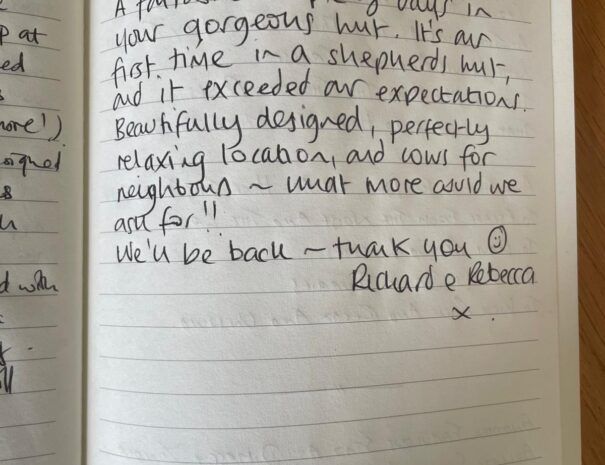 p at
ed
s
nore!)
signed
s
u
d with
ll
A days in
your gorgeous hut. It's our
first time in a shepherds hut,
and it exceeded our expectations.
Beautifully designed, perfectly
relaxing location, and cows for
neighbours ~ what more could we
ask for!!
We'll be back ~ thank you ☺
Richard & Rebecca
x .